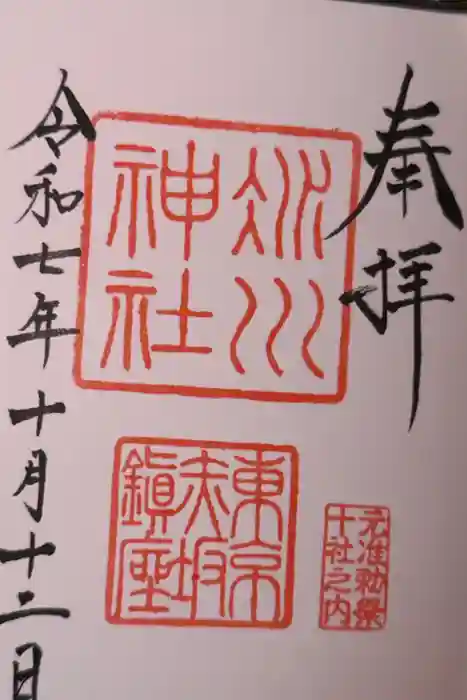 奉拝
氷川
神社
東京
赤坂
鎮座
元准勅祭
十社之内
令和七年十月十二日